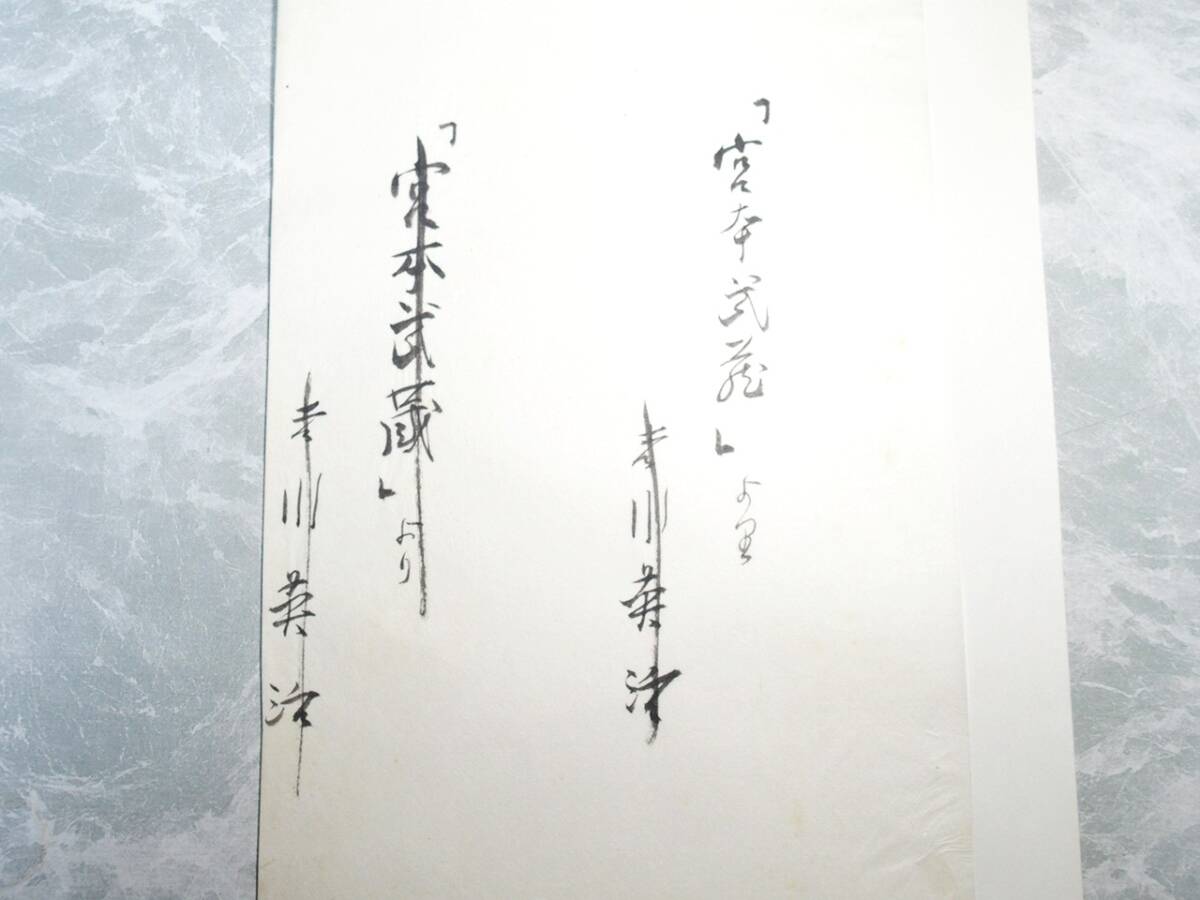 「宮本武蔵」より
吉川英治
「宮本武蔵」より
吉川英治